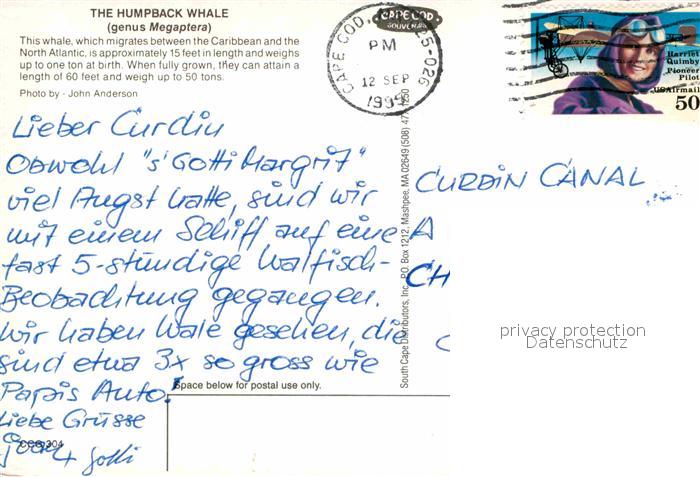 THE HUMPBACK WHALE
(genus Megaptera)
This whale, which migrates between the Caribbean and the
North Atlantic, is approximately 15 feet in length and weighs
up to one ton at birth. When fully grown, they can attain a
length of 60 feet and weigh up to 50 tons.
Photo by - John Anderson
Lieber Curdin
Obwohl "s' Gotti Margrit"
viel Angst hatte, sind wir
mit einem Schiff auf eine
fast 5-stündige Walfisch-
Beobachtung gegangen.
Wir haben Wale gesehen, die
sind etwa 3x so gross wie
Papis Auto!
Liebe Grüsse
Gotti
CCC 304
Space below for postal use only.
South Cape Distributors, Inc., P.O. Box 1212, Mashpee, MA 02649 (508) 477-
CAPE COD,
PM
12 SEP
CAPE COD
SOUVENIRS
Harriet
Quimby
Pioneer
Pilot
USAirmail
50
CURDIN CANAL
A
CH
privacy protection
Datenschutz